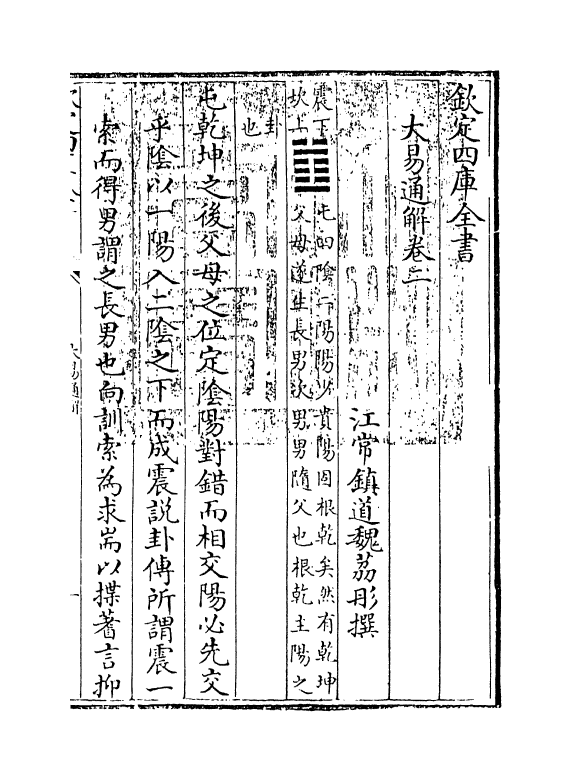 欽定四庫全書
大易通解卷二
江常鎮道魏荔彤撰
震下
坎上
䷂
屯四陰二陽陽少貴陽固根乾矣然有乾坤
父母遂生長男次男男隨父也根乾主陽之
卦
也
屯乾坤之後父母之位定陰陽對錯而相交陽必先交
乎陰以一陽入二陰之下而成震説卦傳所謂震一
索而得男謂之長男也向訓索為求耑以揲蓍言抑